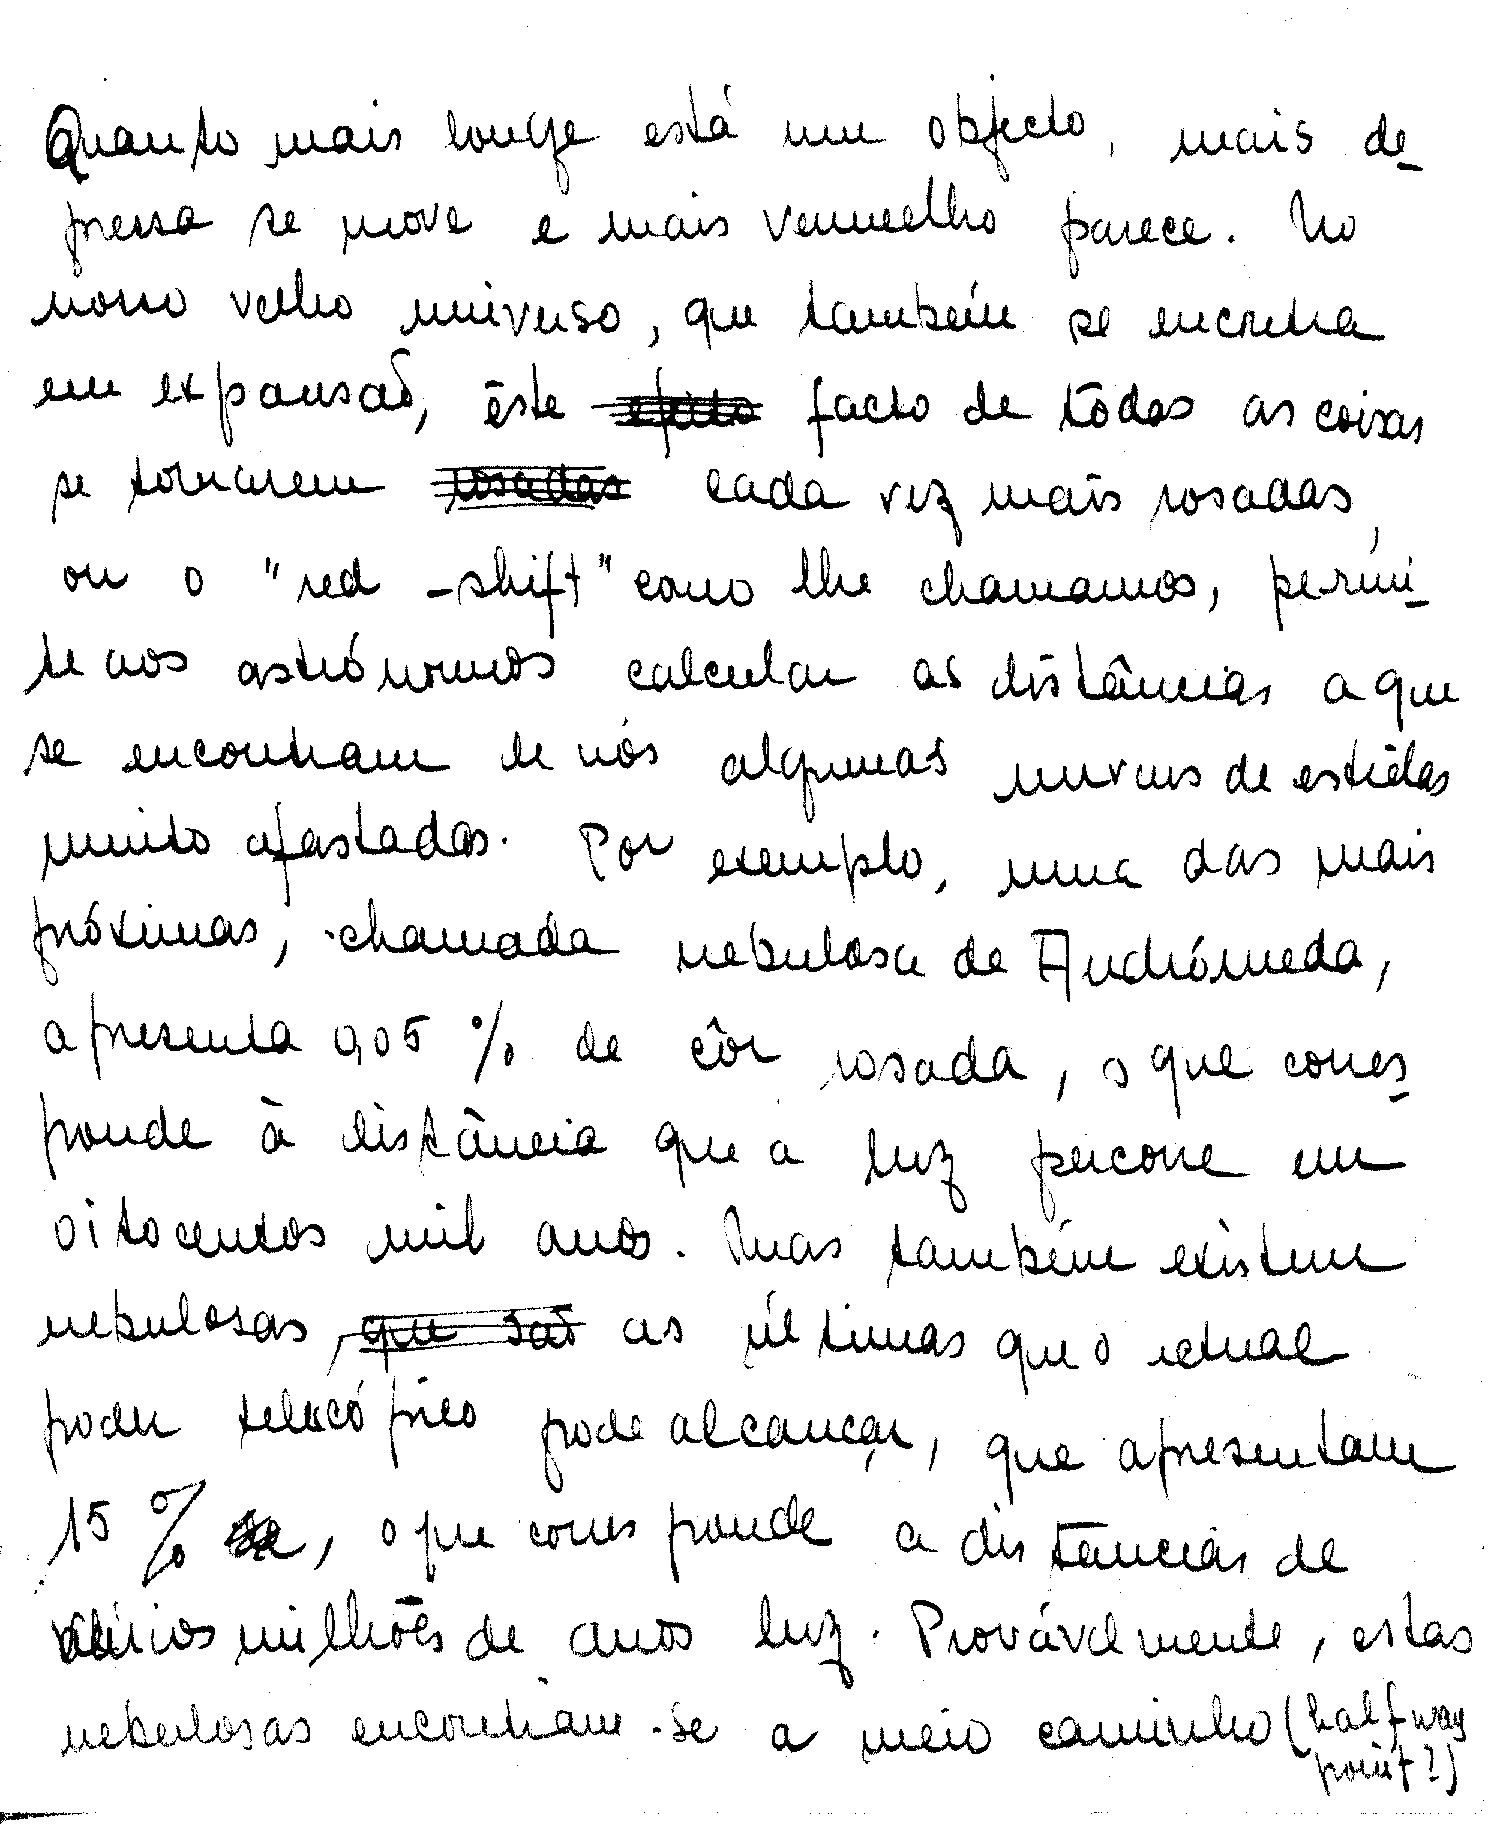 Quanto mais longe está um objecto, mais de-
pressa se move e mais vermelho parece. No
nosso velho universo, que também se encontra
em expansão, êste efeito facto de tôdas as coisas
se tornarem rosadas cada vez mais rosadas,
ou o "red-shift" como lhe chamamos, permi-
te aos astrónomos calcular as distâncias a que
se encontram de nós algumas nuvens de estrêlas
muito afastadas. Por exemplo, uma das mais
próximas, chamada nebulosa de Andrómeda,
apresenta 0,05 % de côr rosada, o que corres-
ponde à distância que a luz percorre em
oitocentos mil anos. Mas também existem
nebulosas, que são as últimas que o actual
poder telescópico pode alcançar, que apresentam
15 % , o que corresponde a distâncias de
vários milhões de anos luz. Provávelmente, estas
nebulosas encontram-se a meio caminho (halfway
point?)